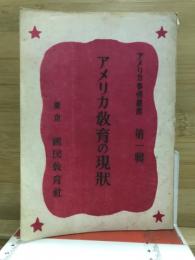 アメリカ事情叢書 第一輯
アメリカ教育の現状
東京 國民教育社